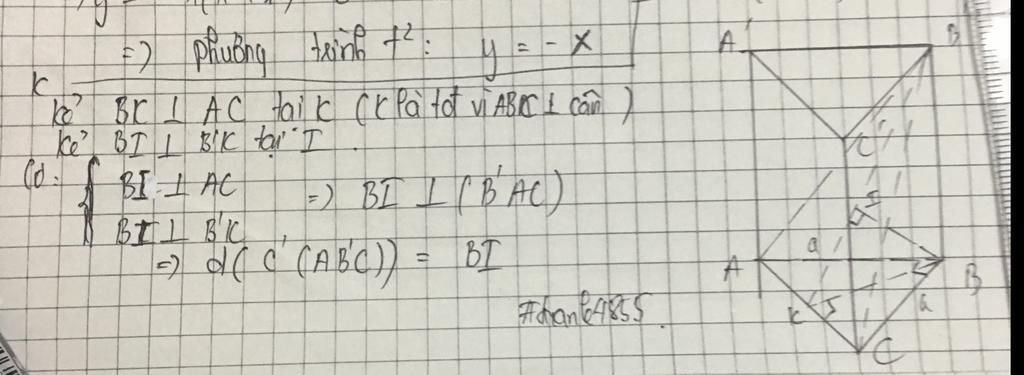 => phương trình t²: y = - x
kẻ BK ⊥ AC tại K (K là tđ vì ABC ⊥ cân)
kẻ BI ⊥ B'K tại I.
Có: { BI ⊥ AC => BI ⊥ (B'AC)
BI ⊥ B'K
=> d(C' (AB'C)) = BI
A'
B'
C'
I
a
A
B
K
a
C